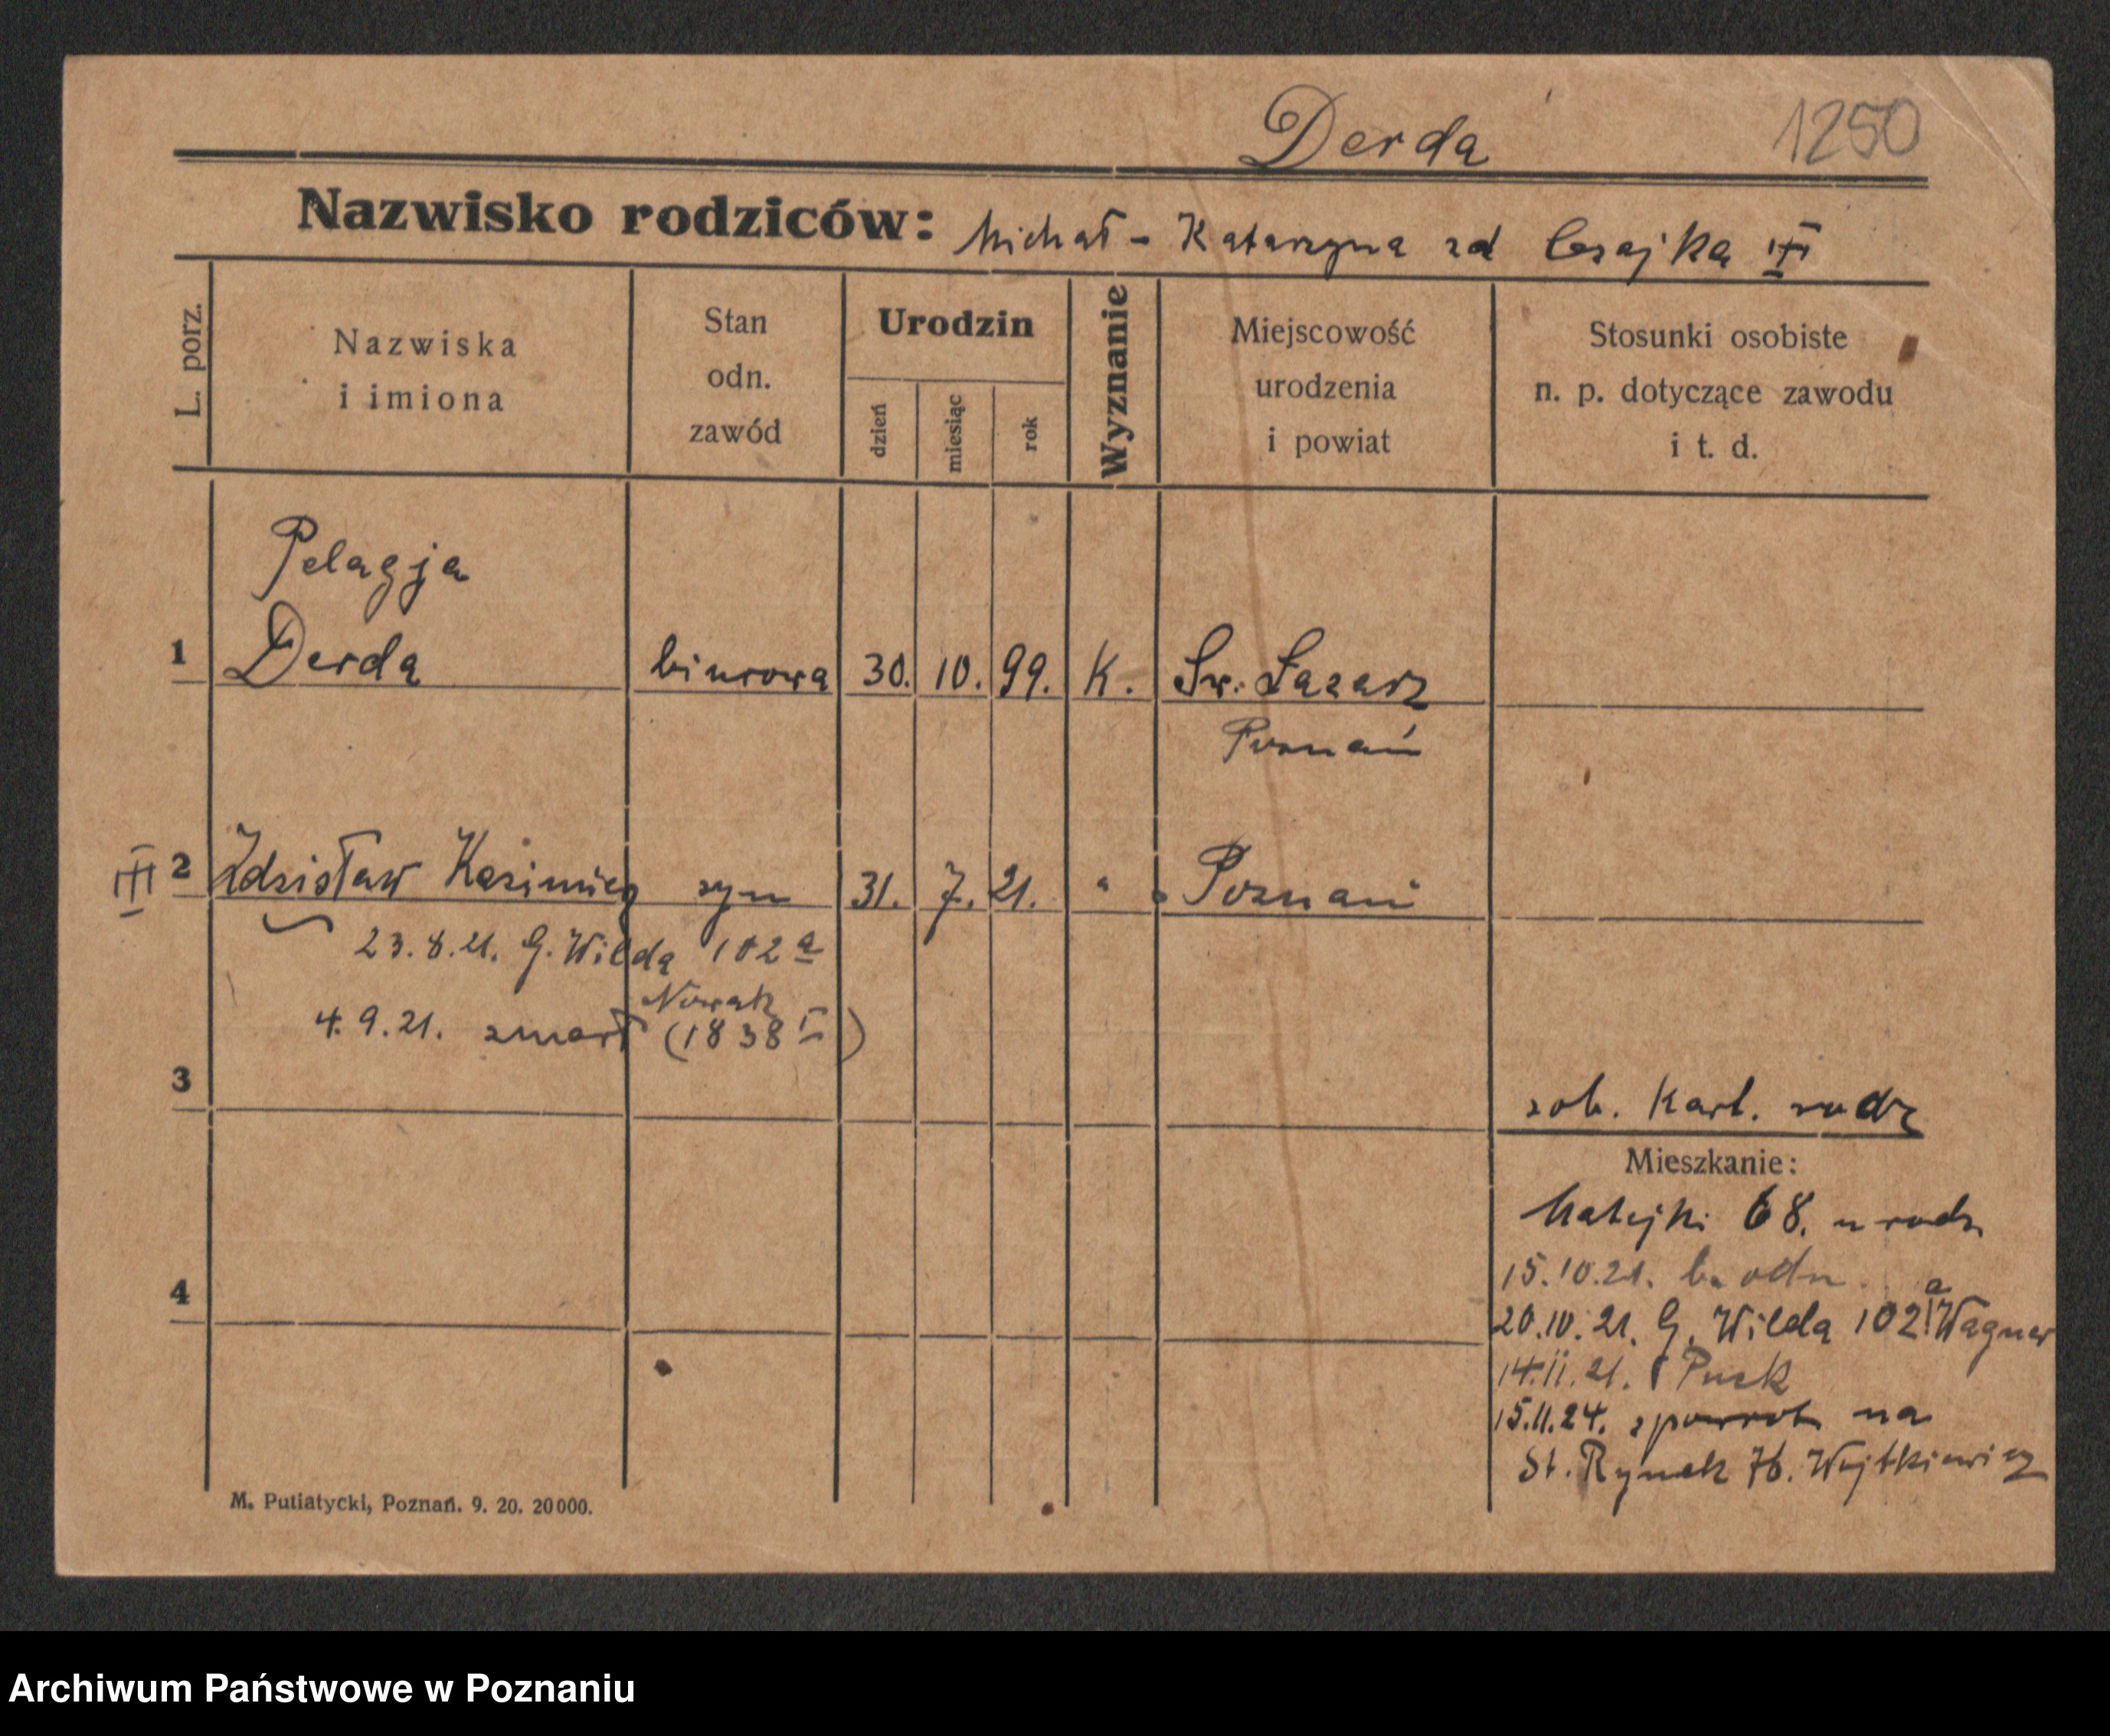 Derda 1250
Nazwisko rodziców: Michał - Katarzyna zd Czajka III
L. porz.
Nazwiska
i imiona
Stan
odn.
zawód
Urodzin
dzień
miesiąc
rok
Wyznanie
Miejscowość
urodzenia
i powiat
Stosunki osobiste
n. p. dotyczące zawodu
i t. d.
Pelagja
1 Derda biurowa 30. 10. 99. K. Św. Łazarz
Poznań
III 2 Zdzisław Kazimierz syn 31. 7. 21. " Poznań
23. 8. 21. G. Wilda 102 a
Nowak
4. 9. 21. zmarł (1838 I)
3
zob. Kart. rodz
Mieszkanie:
Matejki 68. u rodz.
15. 10. 21. b. odm.
20. 10. 21. G. Wilda 102 a Wagner
14. 11. 21. Puck
15. 11. 24. z powrot na
St. Rynek 76. Wojtkiewicz
4
M. Putiatycki, Poznań. 9. 20. 20000.
Archiwum Państwowe w Poznaniu